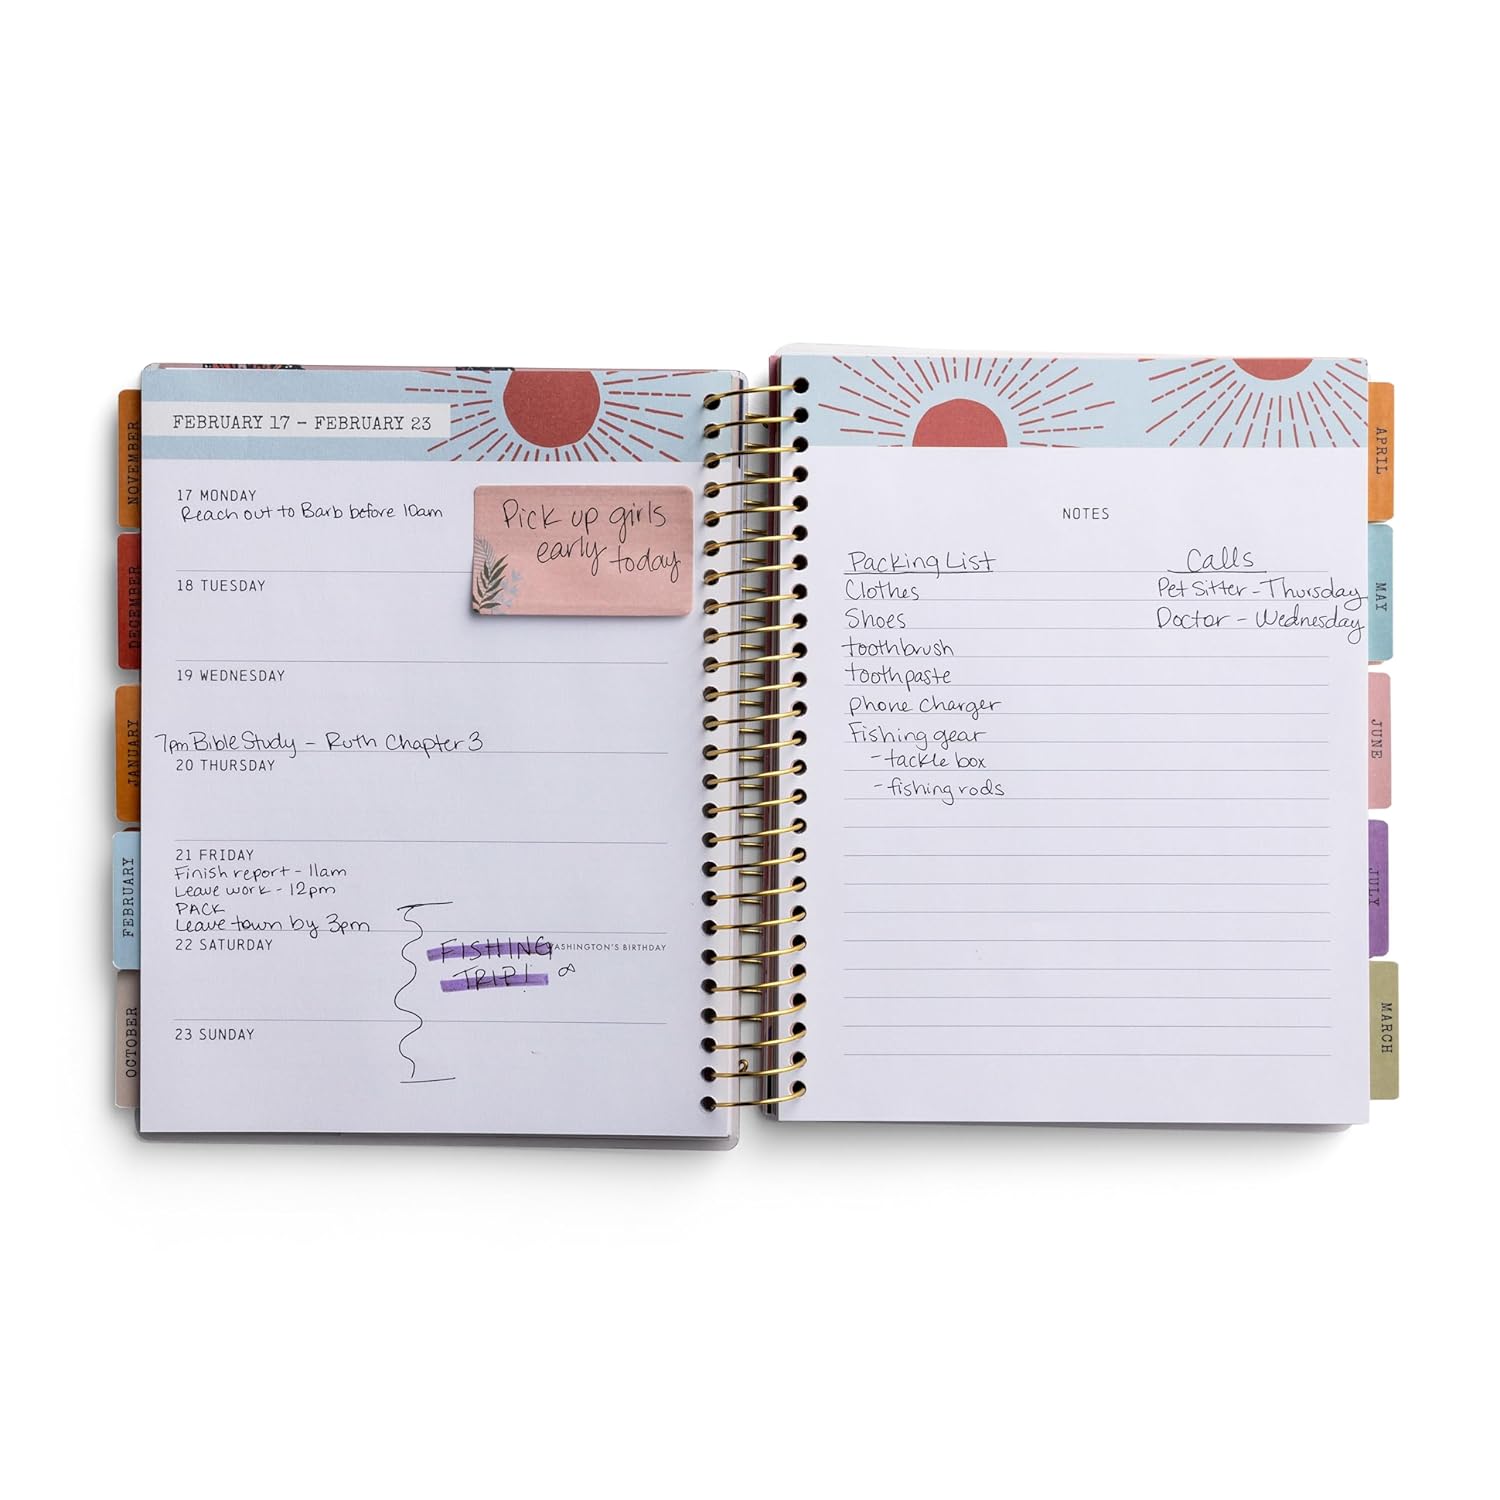 FEBRUARY 17 – FEBRUARY 23
17 MONDAY
Reach out to Barb before 10am
Pick up girls
early today
18 TUESDAY
19 WEDNESDAY
7pm Bible Study – Ruth Chapter 3
20 THURSDAY
21 FRIDAY
Finish report - 11am
Leave work - 12pm
PACK
Leave town by 3pm
22 SATURDAY
FISHING
TRIP!
WASHINGTON'S BIRTHDAY
23 SUNDAY
NOTES
Packing List
Clothes
Shoes
toothbrush
toothpaste
phone charger
Fishing gear
- tackle box
- fishing rods
Calls
Pet Sitter - Thursday
Doctor - Wednesday
NOVEMBER
DECEMBER
JANUARY
FEBRUARY
OCTOBER
APRIL
MAY
JUNE
JULY
MARCH